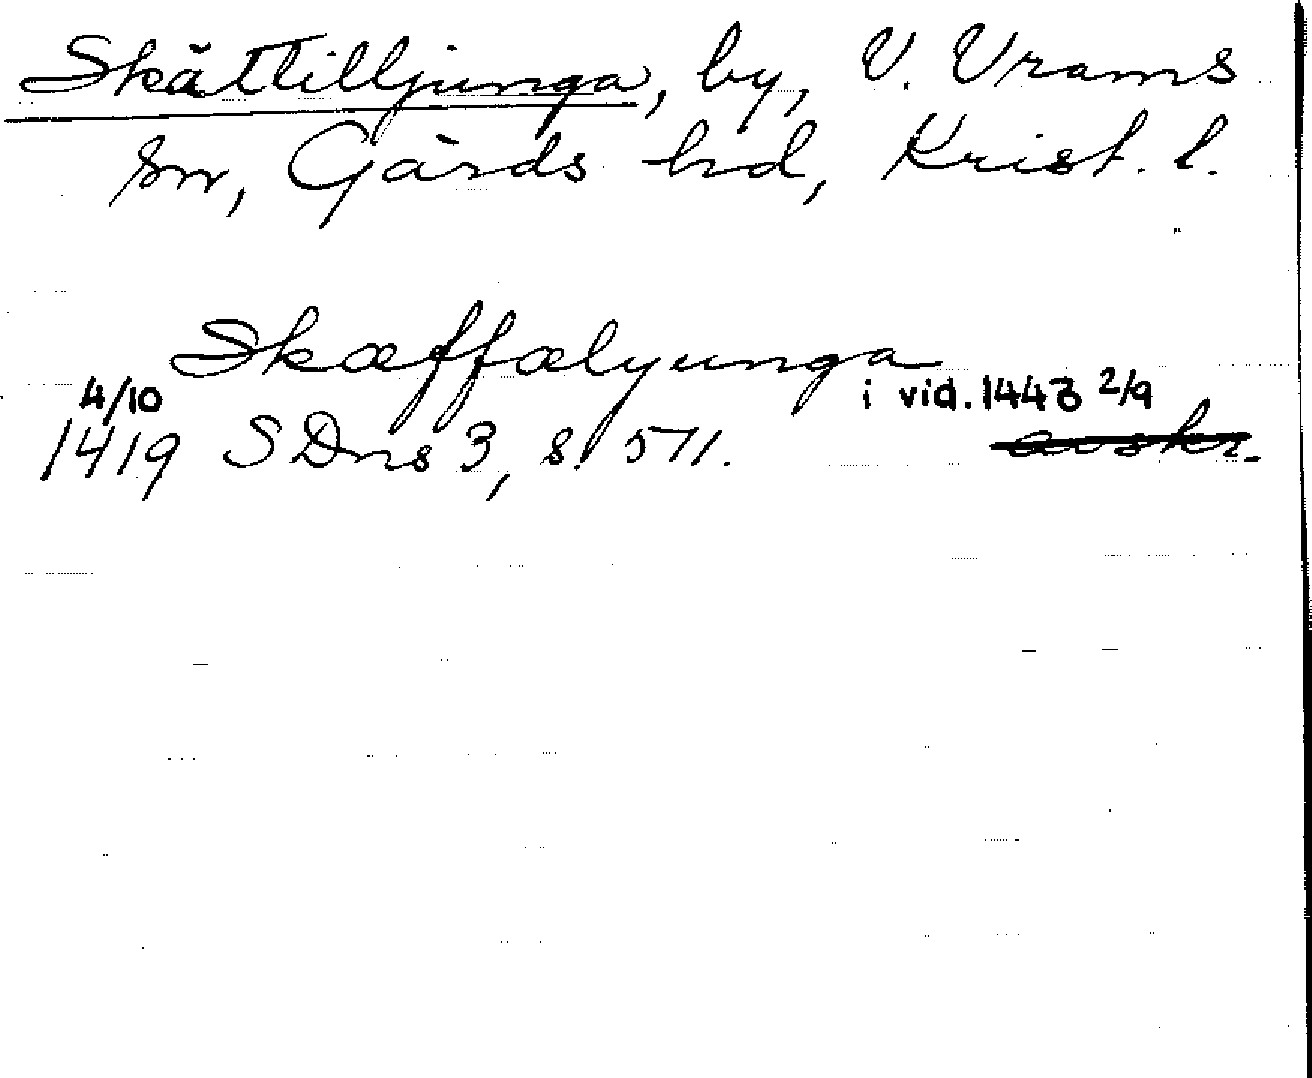 Skättilljunga, by, V. Vrams
sn, Gärds hd, Krist. l.
Skæffælyunga
4/10 i vid. 1443 2/9
1419 SDns 3, s. 571. avskr.